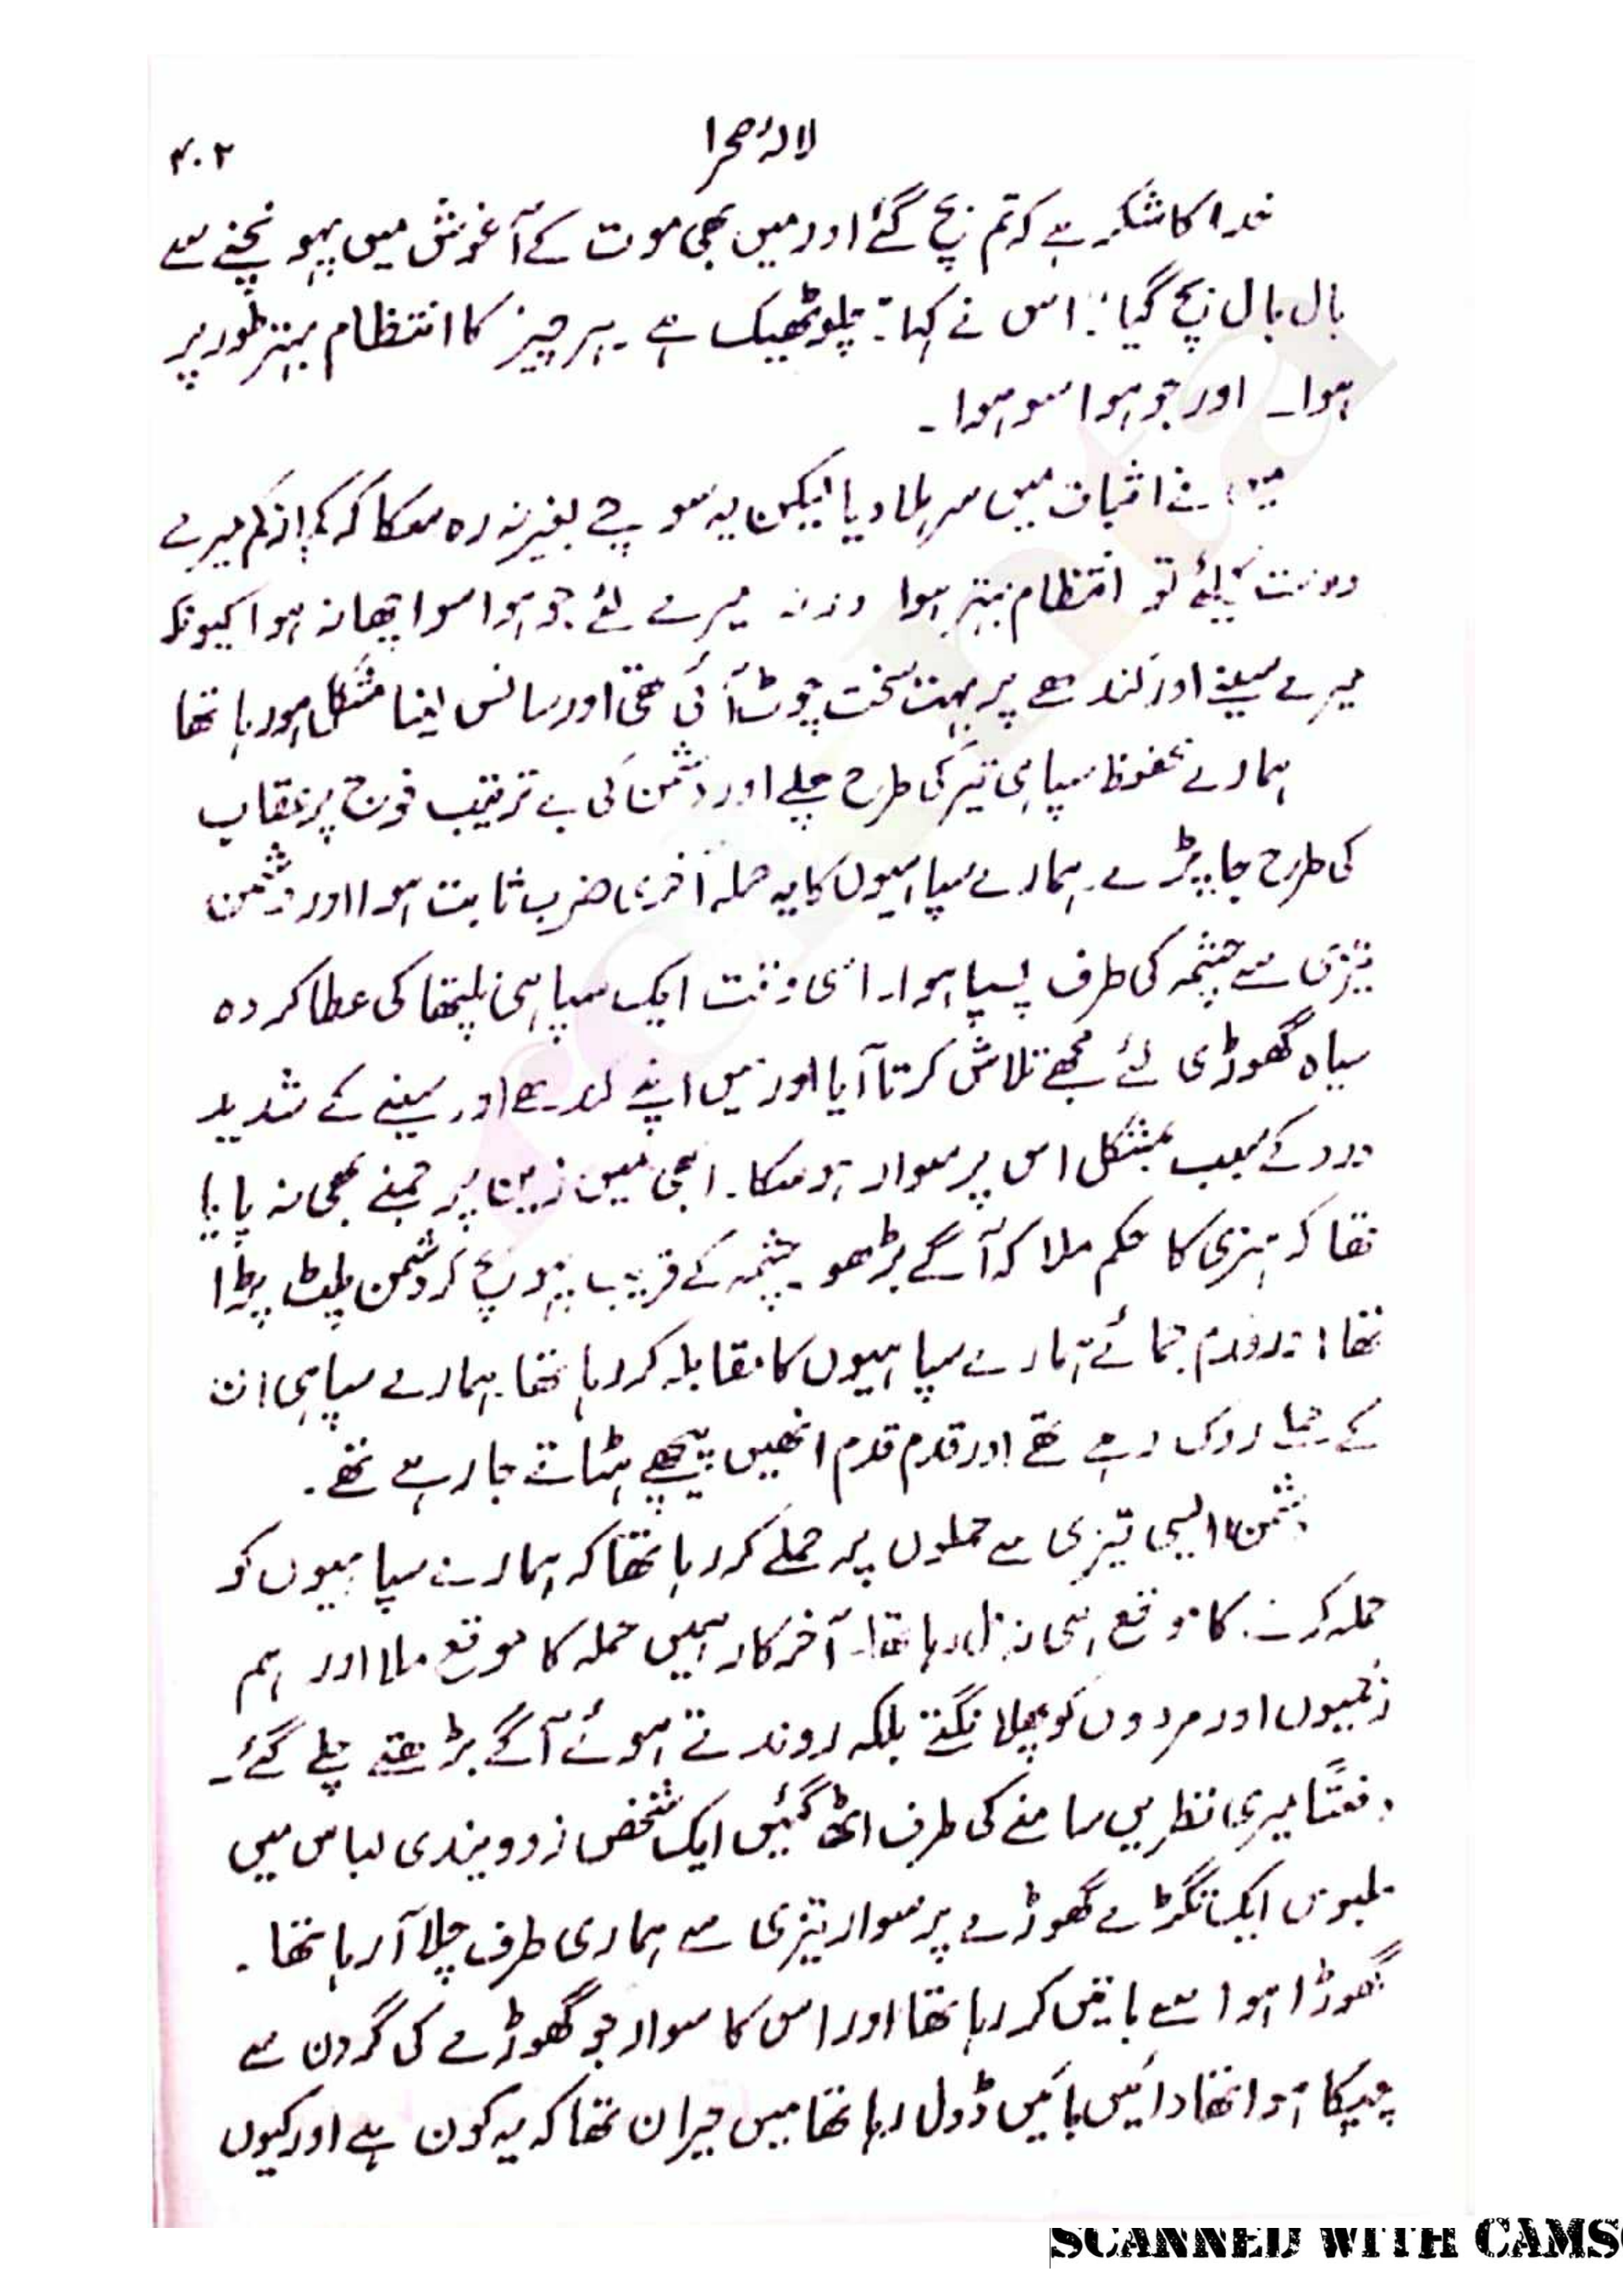 لالۂ صحرا
۴۰۲
خدا کا شکر ہے کہ تم بچ گئے اور میں بھی موت کے آغوش میں پہونچنے سے
بال بال بچ گیا" اس نے کہا: "چلو ٹھیک ہے ہر چیز کا انتظام بہتر طور پر
ہوا۔ اور جو ہوا سو ہوا۔
میں نے اثبات میں سر ہلا دیا لیکن یہ سوچے بغیر نہ رہ سکا کہ کم از کم میرے
دوست کیلئے تو انتظام بہتر ہوا ورنہ میرے لئے جو ہوا سو اچھا نہ ہوا کیونکہ
میرے سینے اور کندھے پر بہت سخت چوٹ آئی تھی اور سانس لینا مشکل ہو رہا تھا
ہمارے محفوظ سپاہی تیر کی طرح چلے اور دشمن کی بے ترتیب فوج پر عقاب
کی طرح جا پڑے۔ ہمارے سپاہیوں کا یہ حملہ آخری ضرب ثابت ہوا اور دشمن
تیزی سے چشمہ کی طرف پسپا ہوا۔ اسی وقت ایک سپاہی کی عطا کردہ
سیاہ گھوڑی لئے مجھے تلاش کرتا آیا اور میں اپنے کندھے اور سینے کے شدید
درد کے سبب بمشکل اس پر سوار ہو سکا۔ ابھی میں زین پر جمنے بھی نہ پایا
تھا کہ ہنری کا حکم ملا کہ آگے بڑھو۔ چشمہ کے قریب پہونچ کر دشمن پلٹ پڑا
تھا اور قدم جمائے ہمارے سپاہیوں کا مقابلہ کر رہا تھا۔ ہمارے سپاہی ان
کے حملے روک رہے تھے اور قدم قدم انھیں پیچھے ہٹاتے جا رہے تھے۔
دشمن ایسی تیزی سے حملوں پر حملے کر رہا تھا کہ ہمارے سپاہیوں کو
حملہ کرنے کا موقع ہی نہ مل رہا تھا۔ آخر کار ہمیں حملہ کا موقع ملا اور ہم
زخمیوں اور مردوں کو پھلانگتے بلکہ روندتے ہوئے آگے بڑھتے چلے گئے۔
دفعتًا میری نظریں سامنے کی طرف اٹھ گئیں ایک شخص زرد ویندی لباس میں
ملبوس ایک تگڑے گھوڑے پر سوار تیزی سے ہماری طرف چلا آ رہا تھا۔
گھوڑا ہوا سے باتیں کر رہا تھا اور اس کا سوار جو گھوڑے کی گردن سے
چپکا ہوا تھا دائیں بائیں ڈول رہا تھا میں حیران تھا کہ یہ کون ہے اور کیوں
SCANNED WITH CAMS